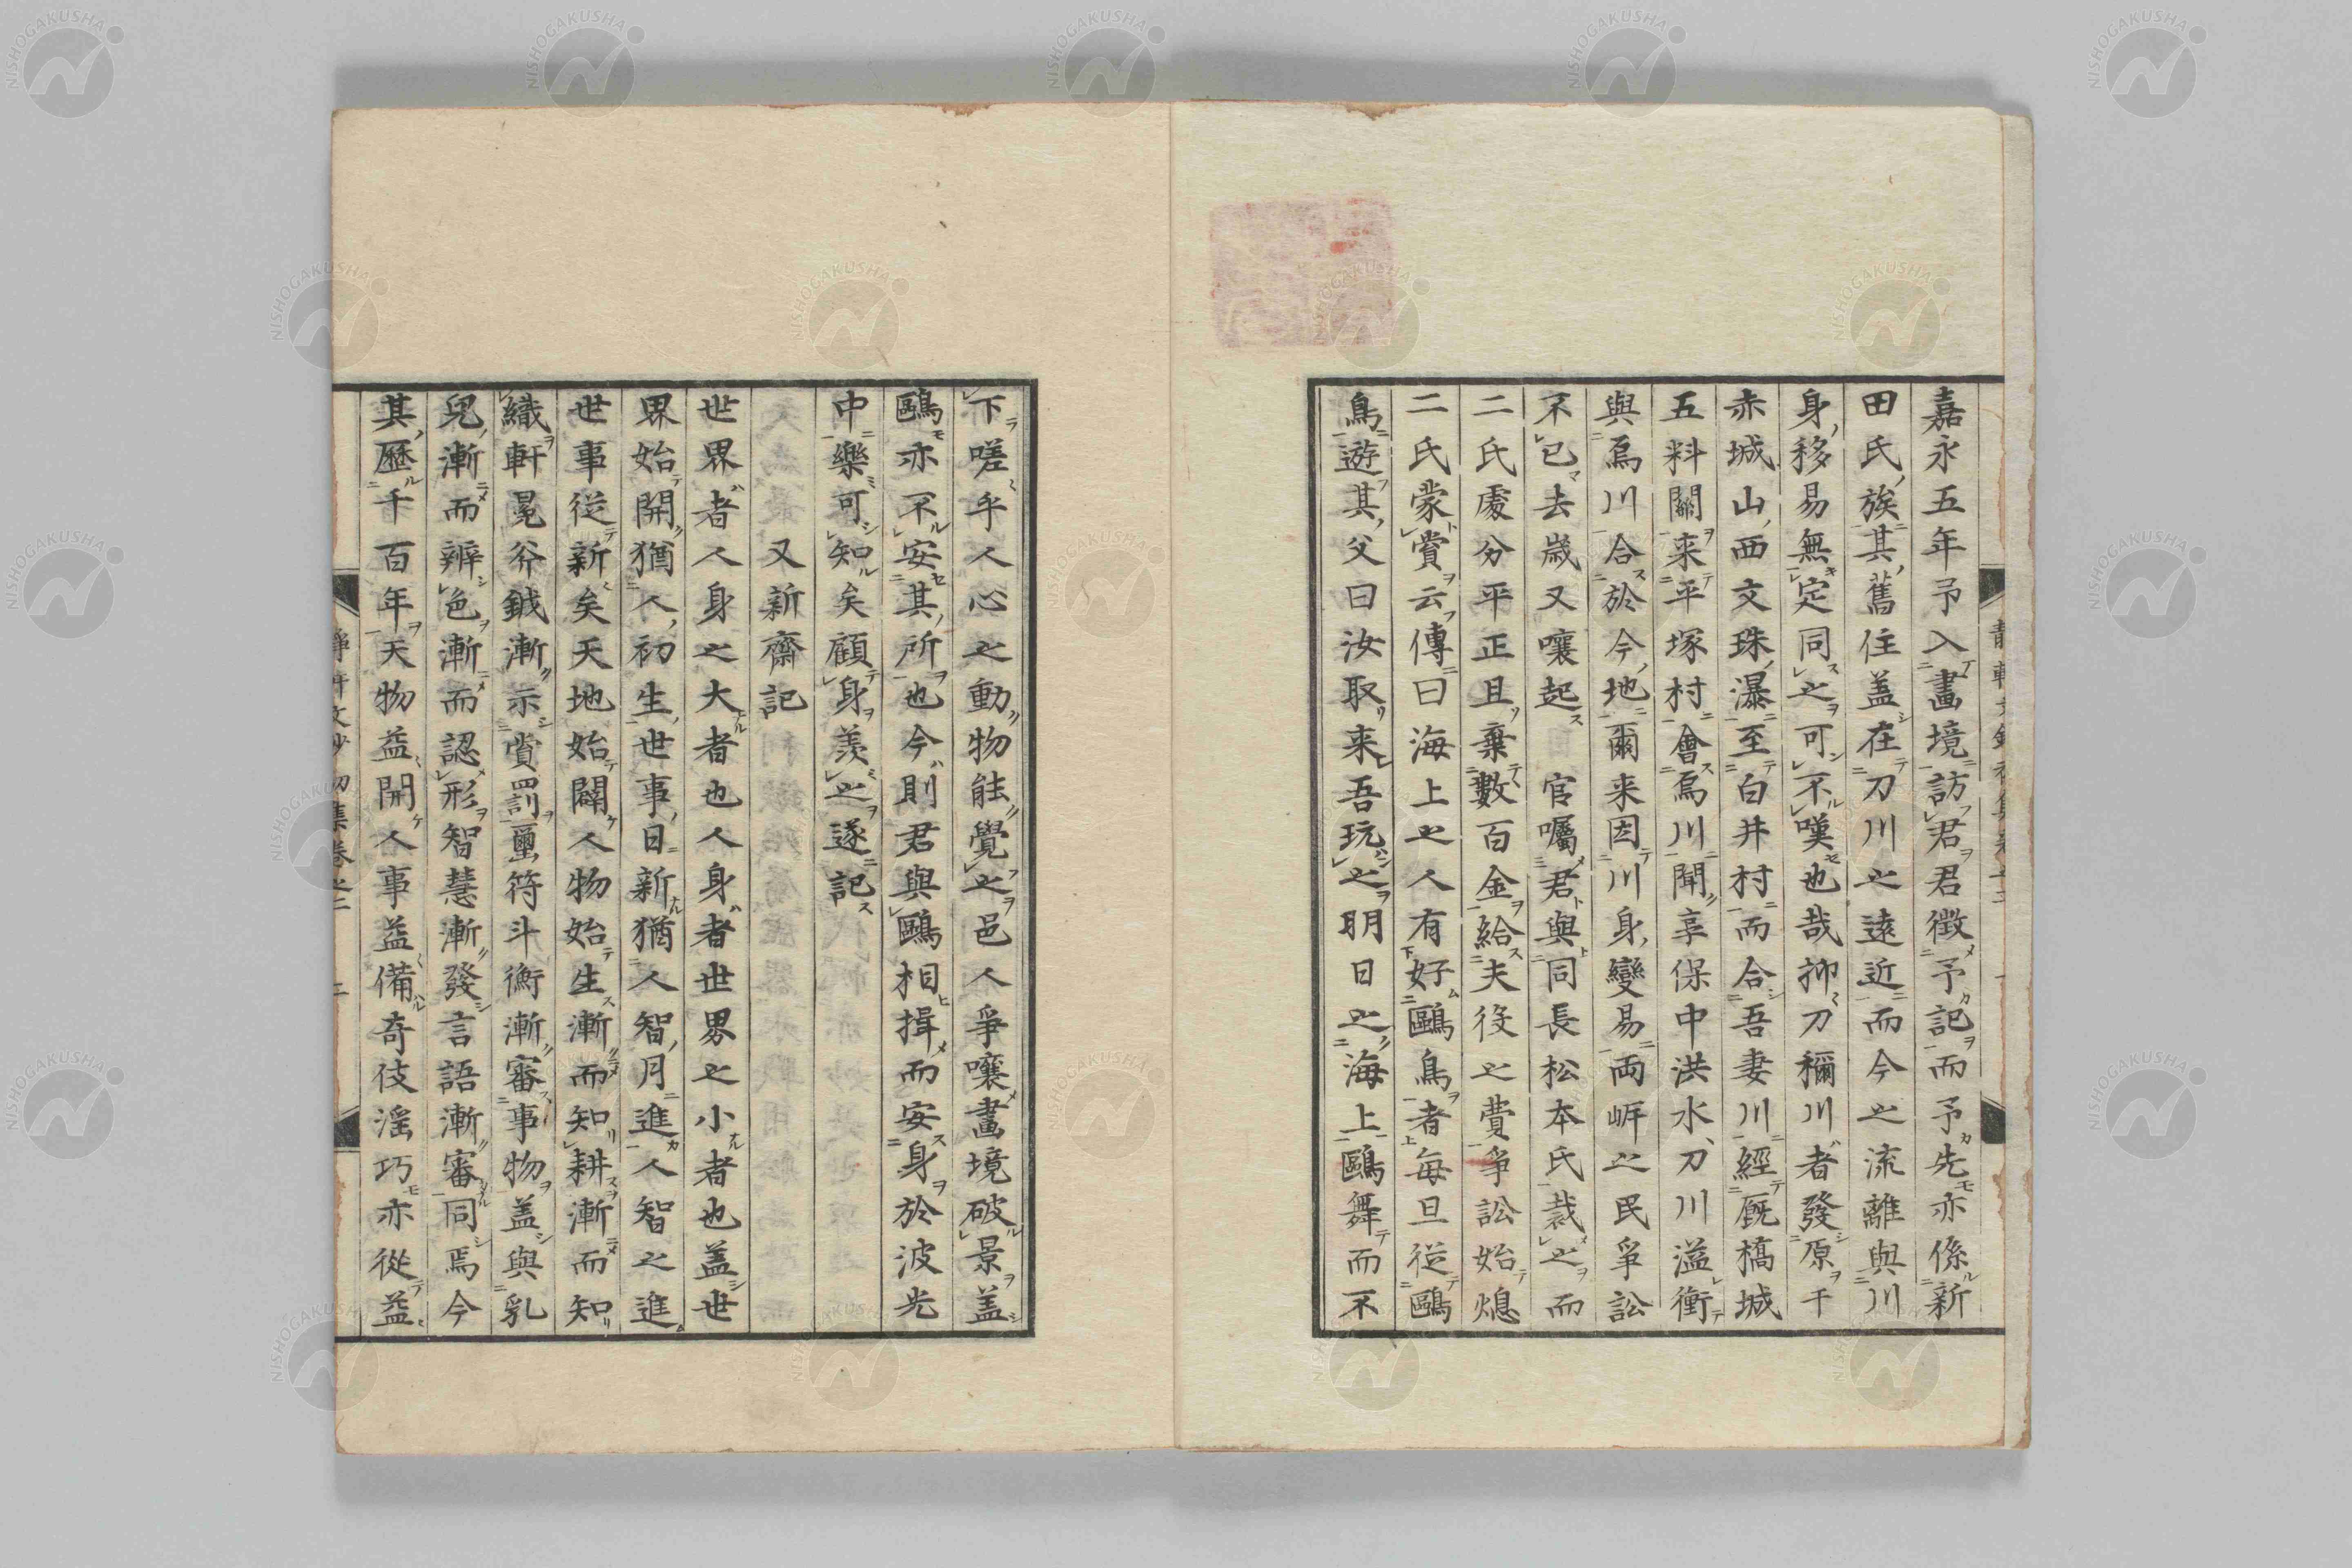 嘉永五年予入畫境訪君君徴予記而予先亦係新
田氏族其舊住盖在刀川之遠近而今之流離與川
身移易無定同之可不嘆也哉抑刀禰川者發原于
赤城山西文珠瀑至白井村而合吾妻川經厩橋城
五料關来平塚村會烏川聞享保中洪水刀川溢衝
與烏川合於今地爾来因川身變易両岍之民爭訟
不已去歳又嚷起 官囑君與同長松本氏裁之而
二氏處分平正且棄數百金給夫役之費爭訟始熄
二氏蒙賞云傳曰海上之人有好鷗鳥者毎旦従鷗
鳥遊其父曰汝取来吾玩之明日之海上鷗舞而不
下嗟乎人心之動物能覺之邑人爭嚷畫境破景盖
鷗亦不安其所也今則君與鷗相揖而安身於波光
中樂可知矣顧身羨之遂記
又新齋記
世界者人身之大者也人身者世界之小者也盖世
界始開猶人初生世事日新猶人智月進人智之進
世事従新矣天地始闢人物始生漸而知耕漸而知
織軒冕斧鉞漸示賞罰璽符斗衡漸審事物盖與乳
兒漸而辨色漸而認形智慧漸發言語漸審同焉今
其歴千百年天物益開人事益備奇伎滛巧亦從益